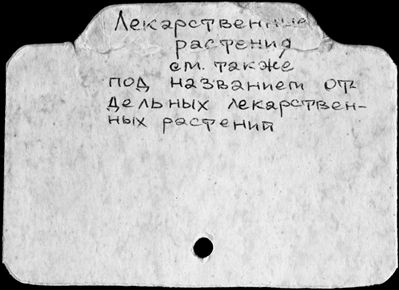 Лекарственные
растения
см. также
под названием от-
дельных лекарствен-
ных растений